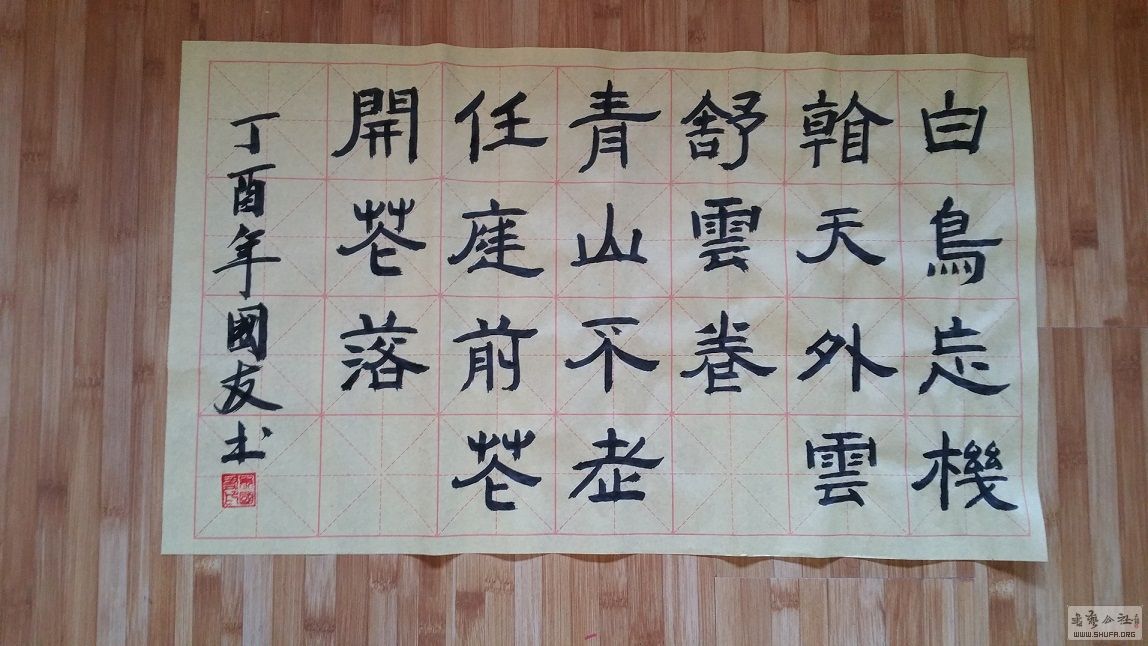 白鳥忘機
看天外雲
舒雲卷
青山不老
任庭前花
開花落
丁酉年國友书
書藝公社
WWW.SHUFA.ORG